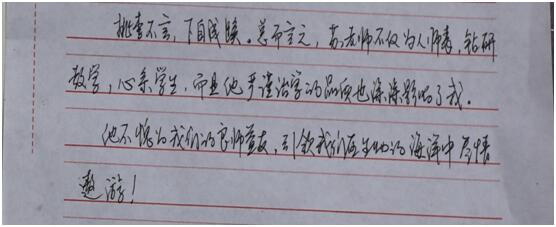 桃李不言，下自成蹊。总而言之，苏老师不仅为人师表，钻研
教学，心系学生，而且他严谨治学的品质也深深影响了我。
他不愧为我们的良师益友，引领我们在生物的海洋中尽情
遨游！